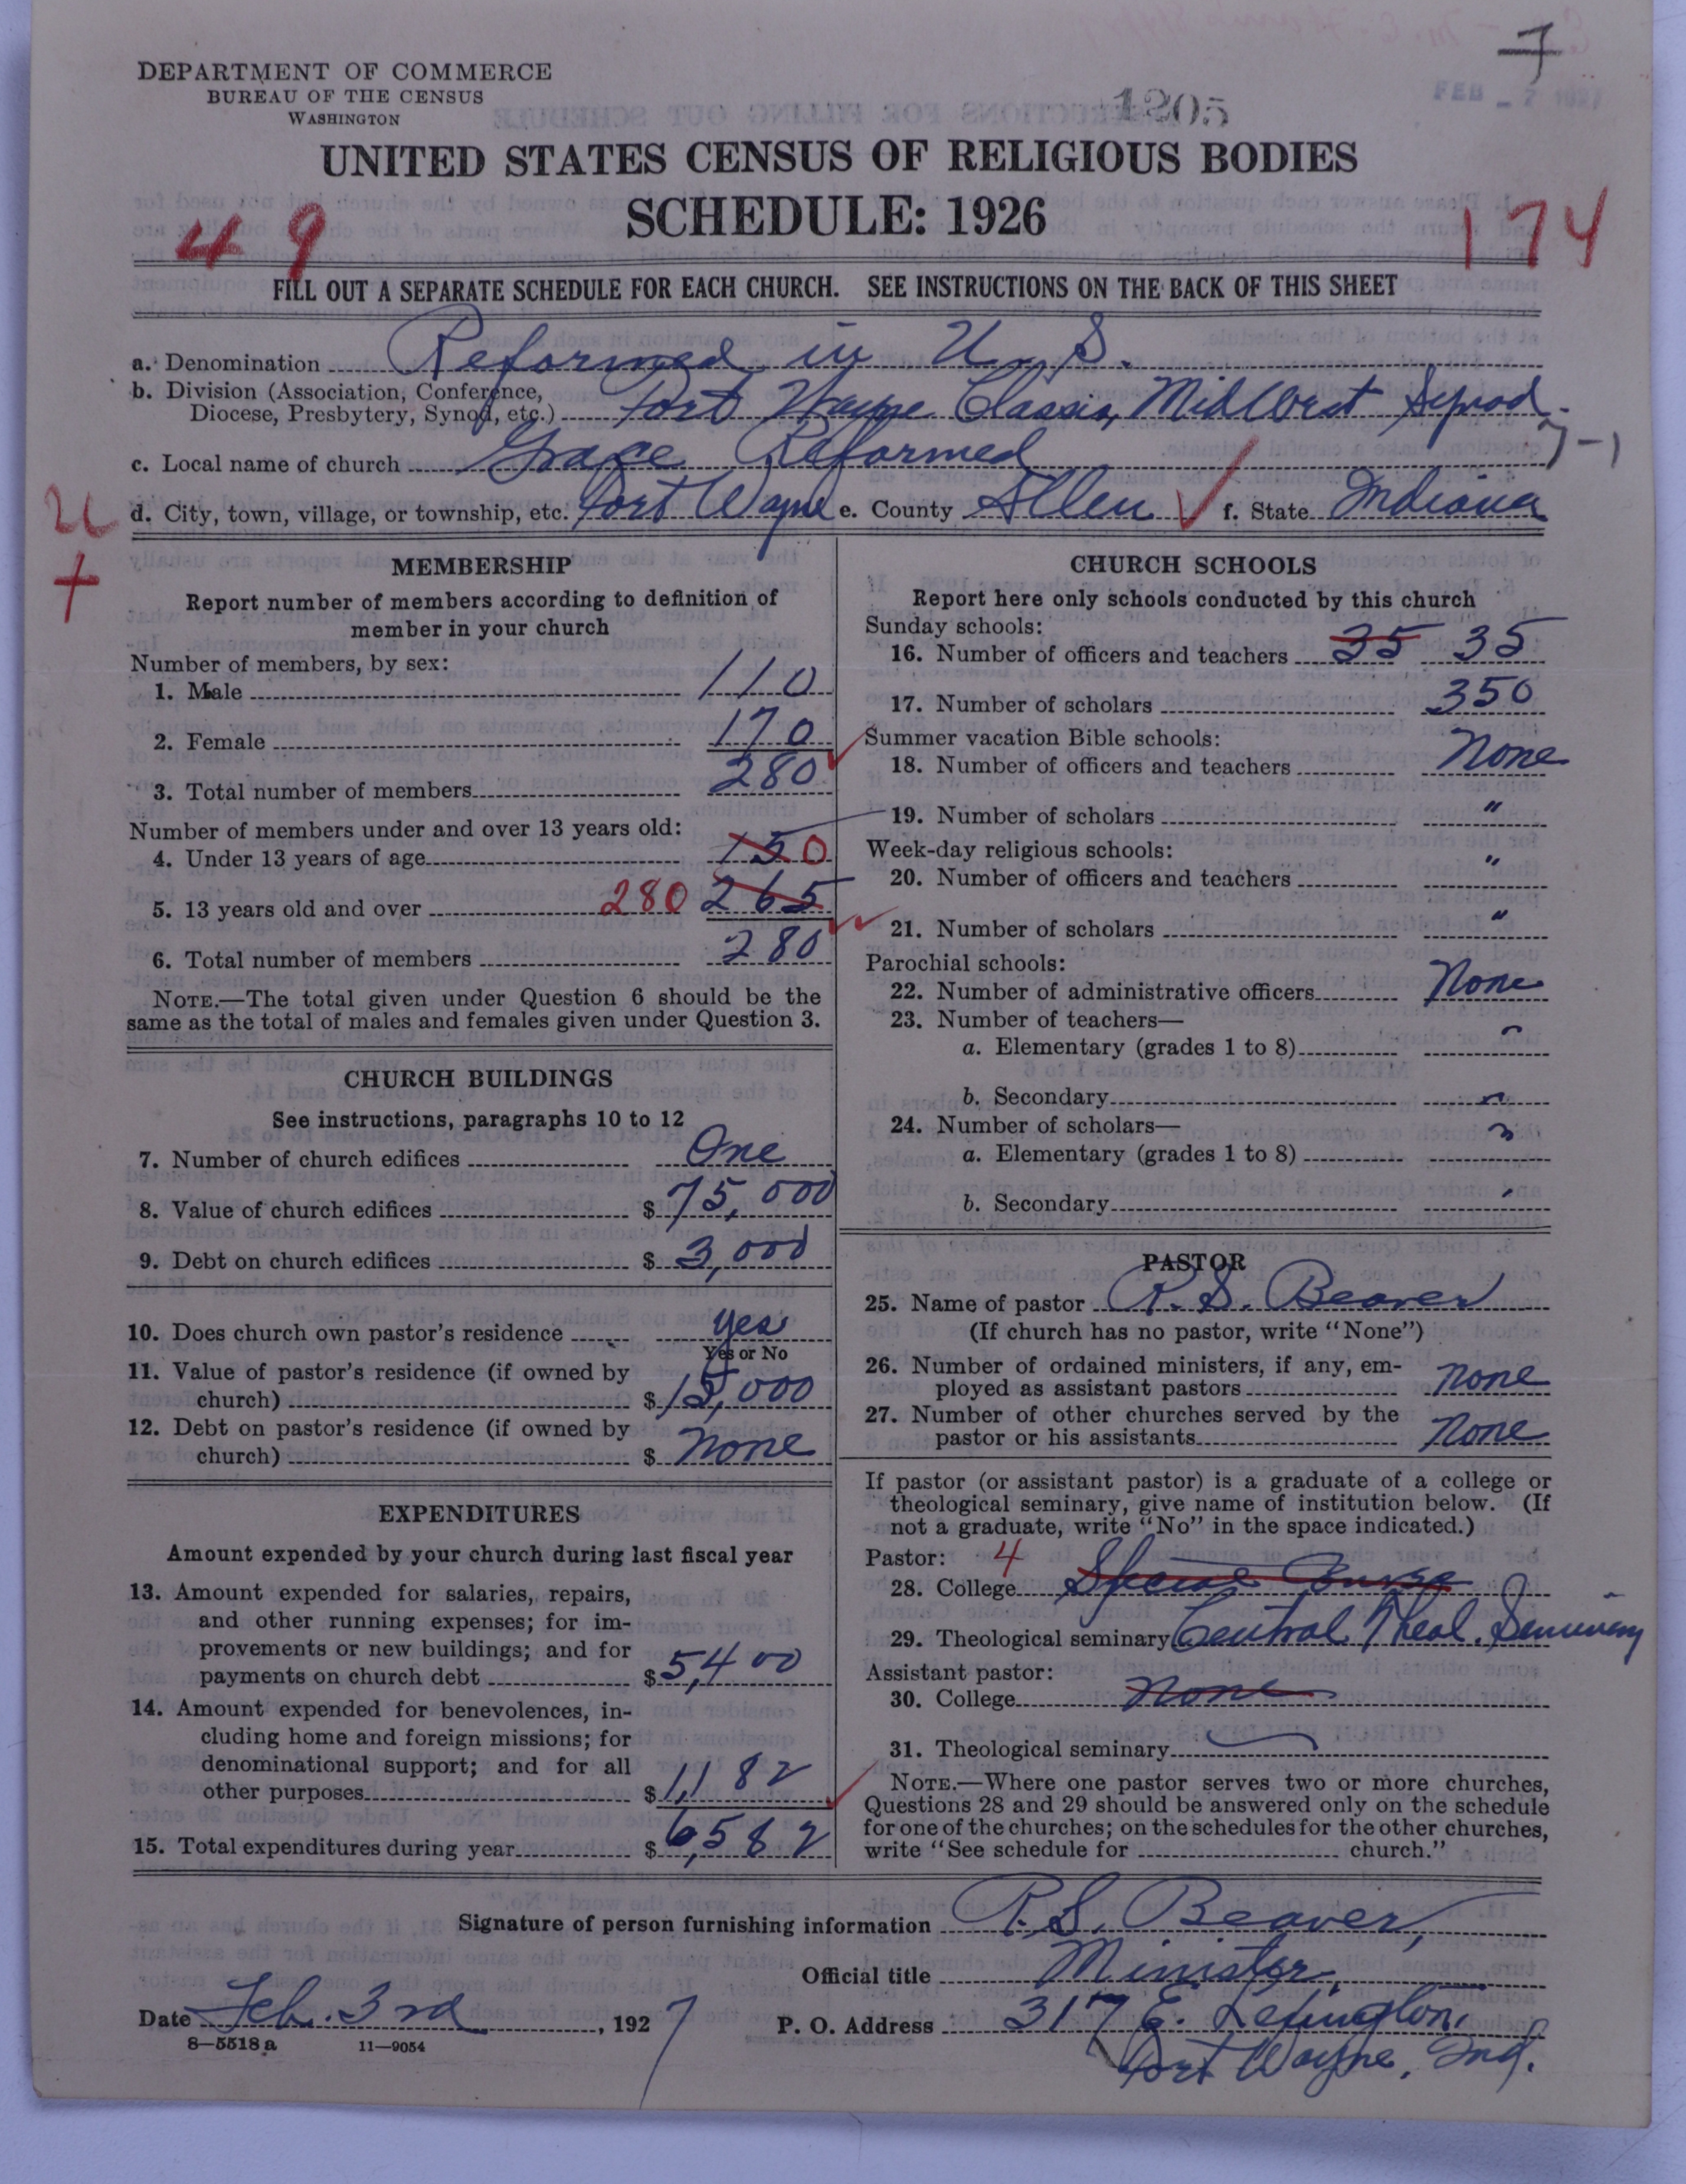 7
DEPARTMENT OF COMMERCE
BUREAU OF THE CENSUS
WASHINGTON
1205
FEB - 7 1927
UNITED STATES CENSUS OF RELIGIOUS BODIES
SCHEDULE: 1926
49
174
FILL OUT A SEPARATE SCHEDULE FOR EACH CHURCH. SEE INSTRUCTIONS ON THE BACK OF THIS SHEET
a. Denomination Reformed in U. S.
b. Division (Association, Conference,
Diocese, Presbytery, Synod, etc.) Fort Wayne Classis, MidWest Synod.
7-1
c. Local name of church Grace Reformed
d. City, town, village, or township, etc. Fort Wayne e. County Allen f. State Indiana
U
+
MEMBERSHIP
Report number of members according to definition of
member in your church
Number of members, by sex:
1. Male 110
2. Female 170
3. Total number of members 280
Number of members under and over 13 years old:
4. Under 13 years of age 15 0
5. 13 years old and over 280 265
6. Total number of members 280
NOTE.—The total given under Question 6 should be the
same as the total of males and females given under Question 3.
CHURCH BUILDINGS
See instructions, paragraphs 10 to 12
7. Number of church edifices One
8. Value of church edifices $ 75,000
9. Debt on church edifices $ 3,000
10. Does church own pastor's residence Yes
Yes or No
11. Value of pastor's residence (if owned by
church) $ 15,000
12. Debt on pastor's residence (if owned by
church) $ None
EXPENDITURES
Amount expended by your church during last fiscal year
13. Amount expended for salaries, repairs,
and other running expenses; for im-
provements or new buildings; and for
payments on church debt $ 5,400
14. Amount expended for benevolences, in-
cluding home and foreign missions; for
denominational support; and for all
other purposes $ 1,182
15. Total expenditures during year $ 6,582
CHURCH SCHOOLS
Report here only schools conducted by this church
Sunday schools:
16. Number of officers and teachers 35 35
17. Number of scholars 350
Summer vacation Bible schools:
18. Number of officers and teachers None
19. Number of scholars "
Week-day religious schools:
20. Number of officers and teachers "
21. Number of scholars "
Parochial schools:
22. Number of administrative officers None
23. Number of teachers—
a. Elementary (grades 1 to 8)
b. Secondary
24. Number of scholars—
a. Elementary (grades 1 to 8)
b. Secondary
PASTOR
25. Name of pastor R. S. Beaver
(If church has no pastor, write "None")
26. Number of ordained ministers, if any, em-
ployed as assistant pastors None
27. Number of other churches served by the
pastor or his assistants None
If pastor (or assistant pastor) is a graduate of a college or
theological seminary, give name of institution below. (If
not a graduate, write "No" in the space indicated.)
Pastor: 4
28. College Special Course
29. Theological seminary Central Theol. Seminary
Assistant pastor:
30. College None
31. Theological seminary
NOTE.—Where one pastor serves two or more churches,
Questions 28 and 29 should be answered only on the schedule
for one of the churches; on the schedules for the other churches,
write "See schedule for church."
Signature of person furnishing information R. S. Beaver,
Official title Minister
Date Feb. 3rd, 1927
P. O. Address 317 E. Lexington,
Fort Wayne, Ind.
8—5518 a 11—9054